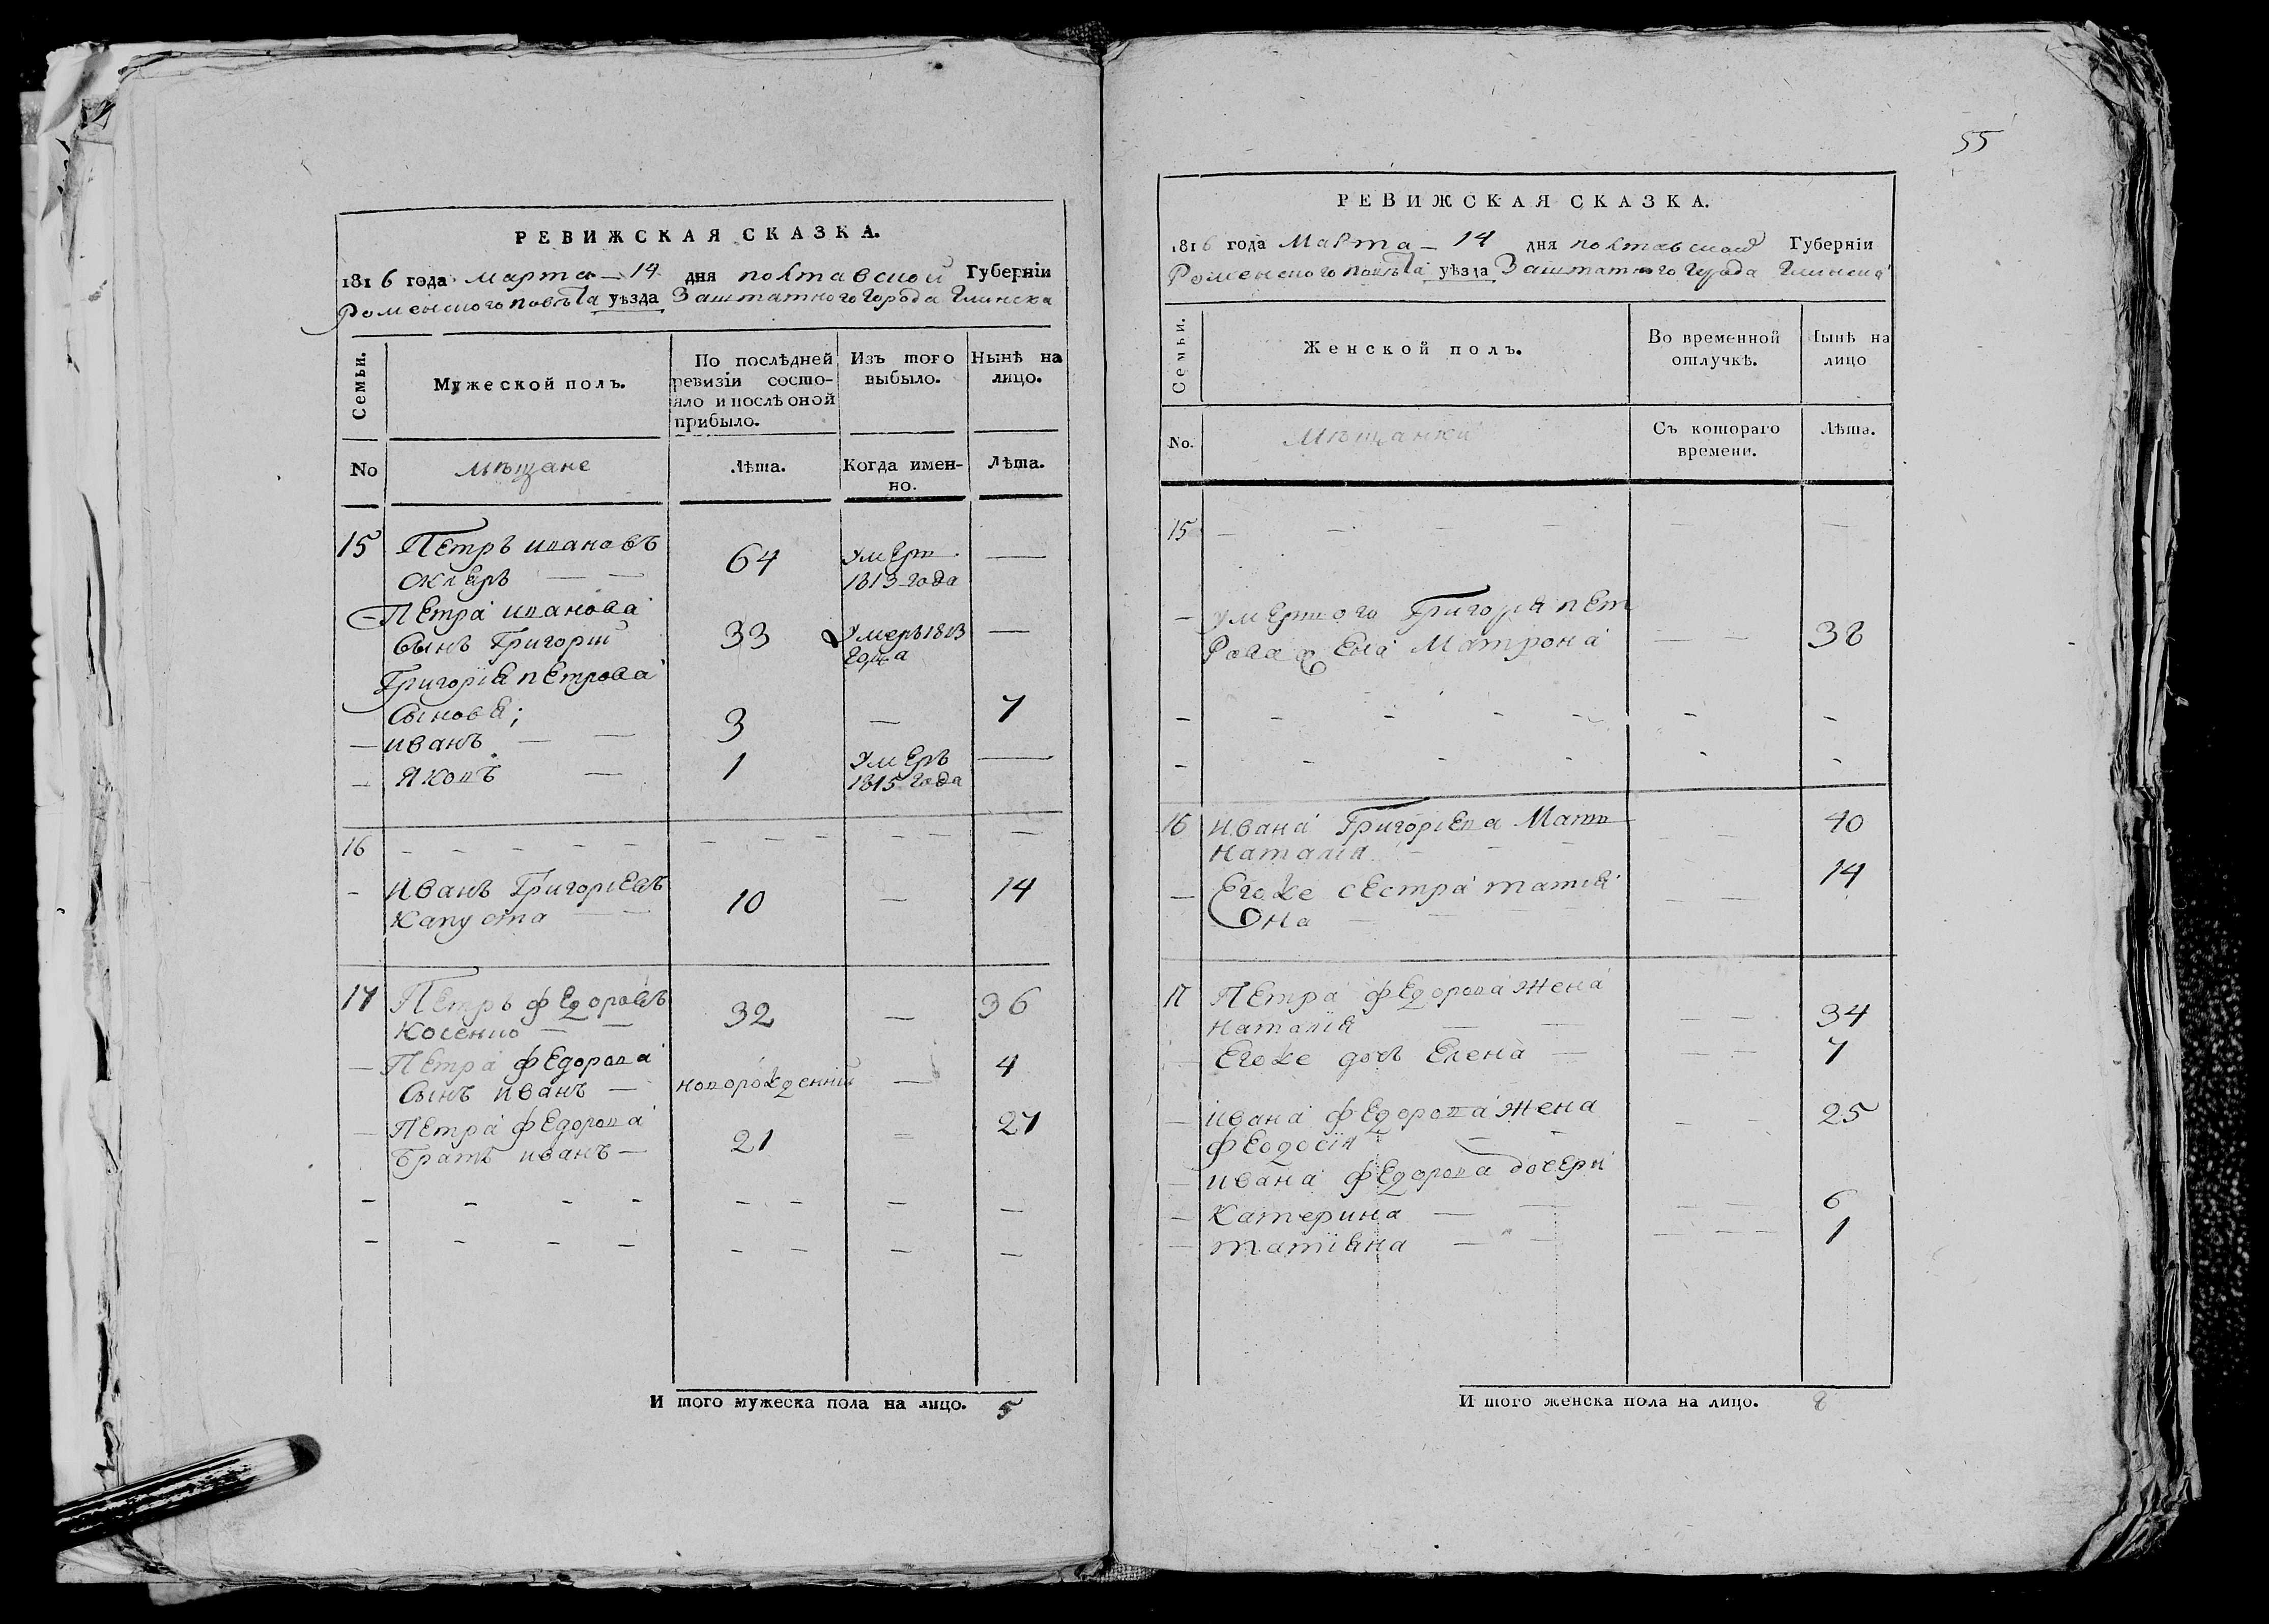 РЕВИЖСКАЯ СКАЗКА.
1816 года марта 14 дня полтавской Губерніи
Роменского повѣта уѣзда Заштатного города Глинска
Семьи.
Мужеской полъ.
По послѣдней ревизіи состо-
яло и послѣ оной
прибыло.
Изъ того
выбыло.
Нынѣ на
лицо.
No
мѣщане
Лѣта.
Когда имен-
но.
Лѣта.
15 Петръ ивановъ
64 умерт —
1813 года
Петра иванова
Сынъ Григорій 33 умеръ 1813 —
года
Григорія петрова
Сыновя;
— иванъ — — 3 — 7
— Яковъ — 1 умеръ —
1815 года
16 — — — — — — — — — — — —
- иванъ Григоріевъ 10 — 14
Капуста — —
17 Петръ федоровъ 32 — 36
Косенко — —
— Петра федорова 4
Сынъ иванъ — новорожденній —
— Петра федорова 27
братъ иванъ — 21 —
- - - - - - - -
- - - - - - - -
И того мужеска пола на лицо. 5
55
РЕВИЖСКАЯ СКАЗКА.
1816 года Марта — 14 дня полтавской Губерніи
Роменского повѣта уѣзда Заштатного города Глинска
Семьи.
Женской полъ.
Во временной
отлучкѣ.
Нынѣ на
лицо
No.
Мѣщанки
Съ котораго
времени.
Лѣта.
15 — — — — — —
— умершого Григорія пет
рова Матрона — — 38
- - - - - - -
- - - - - - -
16 ивана Григоріева Мать — — 40
Наталія — — —
— Егоже сестра татія — — 14
на — — —
17 Петра федорова жена
наталія — — — — 34
— Егоже дочь Елена — — — 7
— ивана федорова жена — — 25
феодосія — —
— ивана федорова дочери
— Катерина — — — — 6
— татіяна — — — — — 1
И того женска пола на лицо. 8